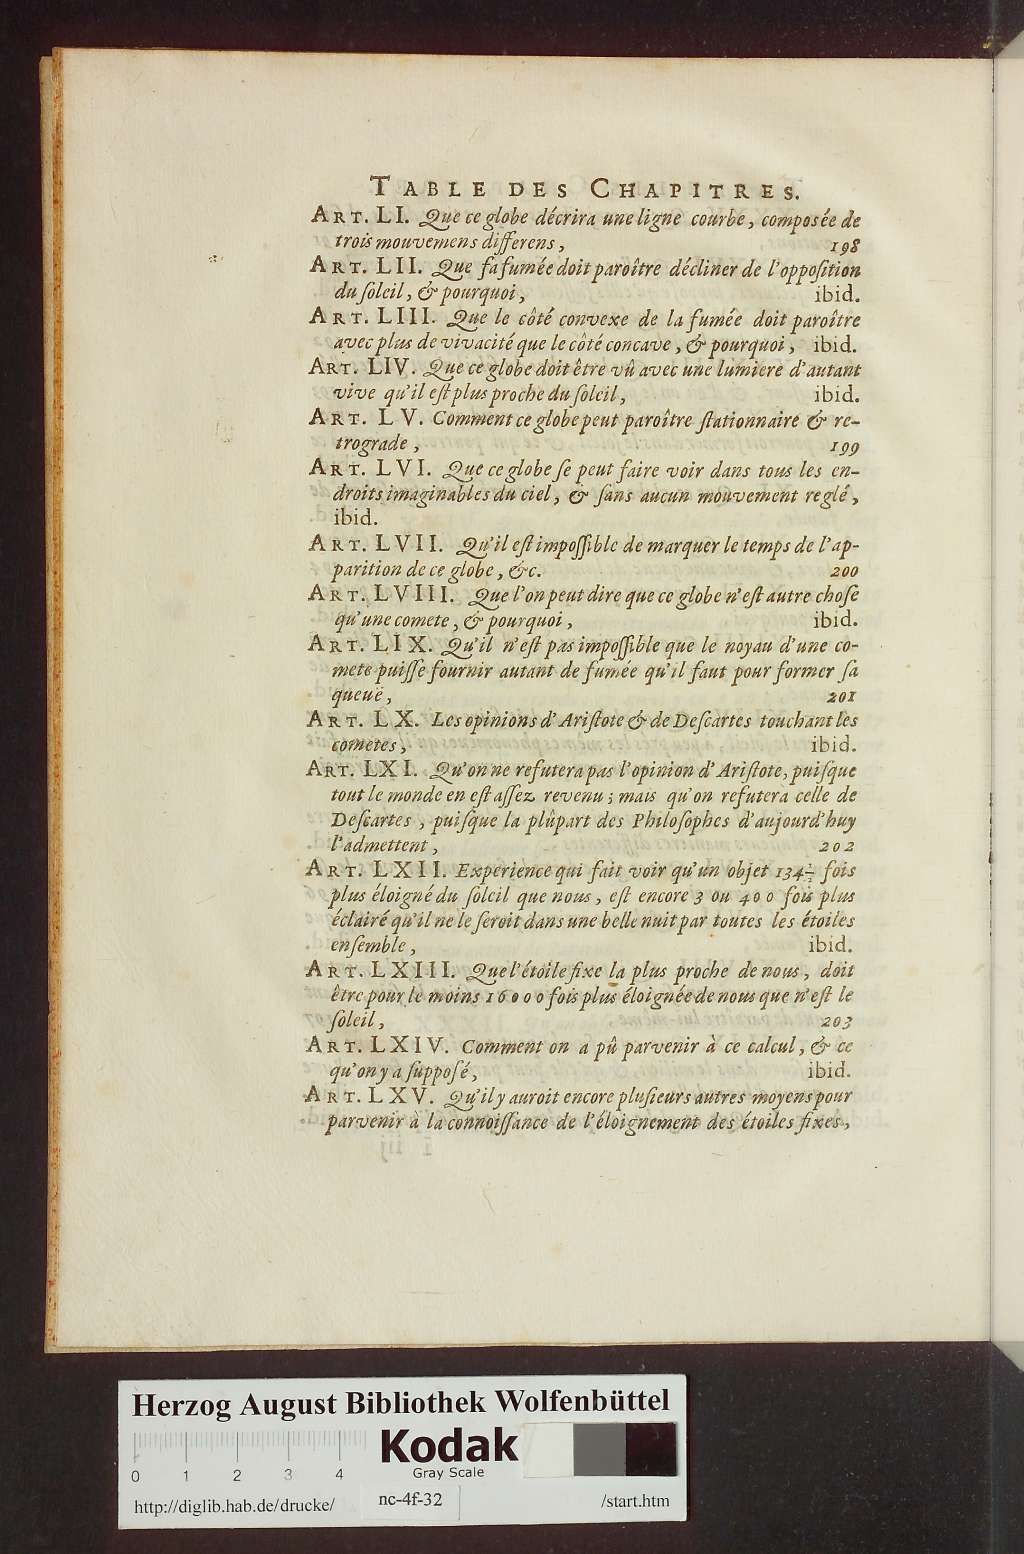 TABLE DES CHAPITRES.
ART. LI. Que ce globe décrira une ligne courbe, composée de
trois mouvemens differens, 198
ART. LII. Que sa fumée doit paroître décliner de l'opposition
du soleil, & pourquoi, ibid.
ART. LIII. Que le côté convexe de la fumée doit paroître
avec plus de vivacité que le côté concave, & pourquoi, ibid.
ART. LIV. Que ce globe doit être vû avec une lumiere d'autant
vive qu'il est plus proche du soleil, ibid.
ART. LV. Comment ce globe peut paroître stationnaire & re-
trograde, 199
ART. LVI. Que ce globe se peut faire voir dans tous les en-
droits imaginables du ciel, & sans aucun mouvement reglé,
ibid.
ART. LVII. Qu'il est impossible de marquer le temps de l'ap-
parition de ce globe, &c. 200
ART. LVIII. Que l'on peut dire que ce globe n'est autre chose
qu'une comete, & pourquoi, ibid.
ART. LIX. Qu'il n'est pas impossible que le noyau d'une co-
mete puisse fournir autant de fumée qu'il faut pour former sa
queuë, 201
ART. LX. Les opinions d'Aristote & de Descartes touchant les
cometes, ibid.
ART. LXI. Qu'on ne refutera pas l'opinion d'Aristote, puisque
tout le monde en est assez revenu; mais qu'on refutera celle de
Descartes, puisque la plûpart des Philosophes d'aujourd'huy
l'admettent, 202
ART. LXII. Experience qui fait voir qu'un objet 134½ fois
plus éloigné du soleil que nous, est encore 3 ou 400 fois plus
éclairé qu'il ne le seroit dans une belle nuit par toutes les étoiles
ensemble, ibid.
ART. LXIII. Que l'étoile fixe la plus proche de nous, doit
être pour le moins 16000 fois plus éloignée de nous que n'est le
soleil, 203
ART. LXIV. Comment on a pû parvenir à ce calcul, & ce
qu'on y a supposé, ibid.
ART. LXV. Qu'il y auroit encore plusieurs autres moyens pour
parvenir à la connoissance de l'éloignement des étoiles fixes,
Herzog August Bibliothek Wolfenbüttel
Kodak
Gray Scale
0 1 2 3 4
http://diglib.hab.de/drucke/ nc-4f-32 /start.htm